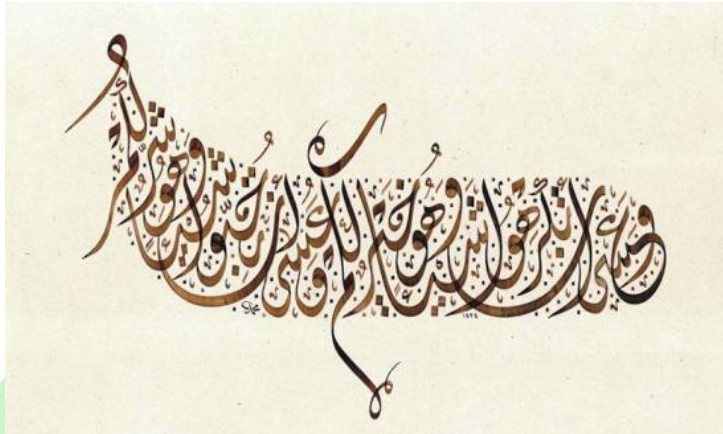 وعسى أن تكرهوا شيئا وهو خير لكم وعسى أن تحبوا شيئا وهو شر لكم
١٤٣٤